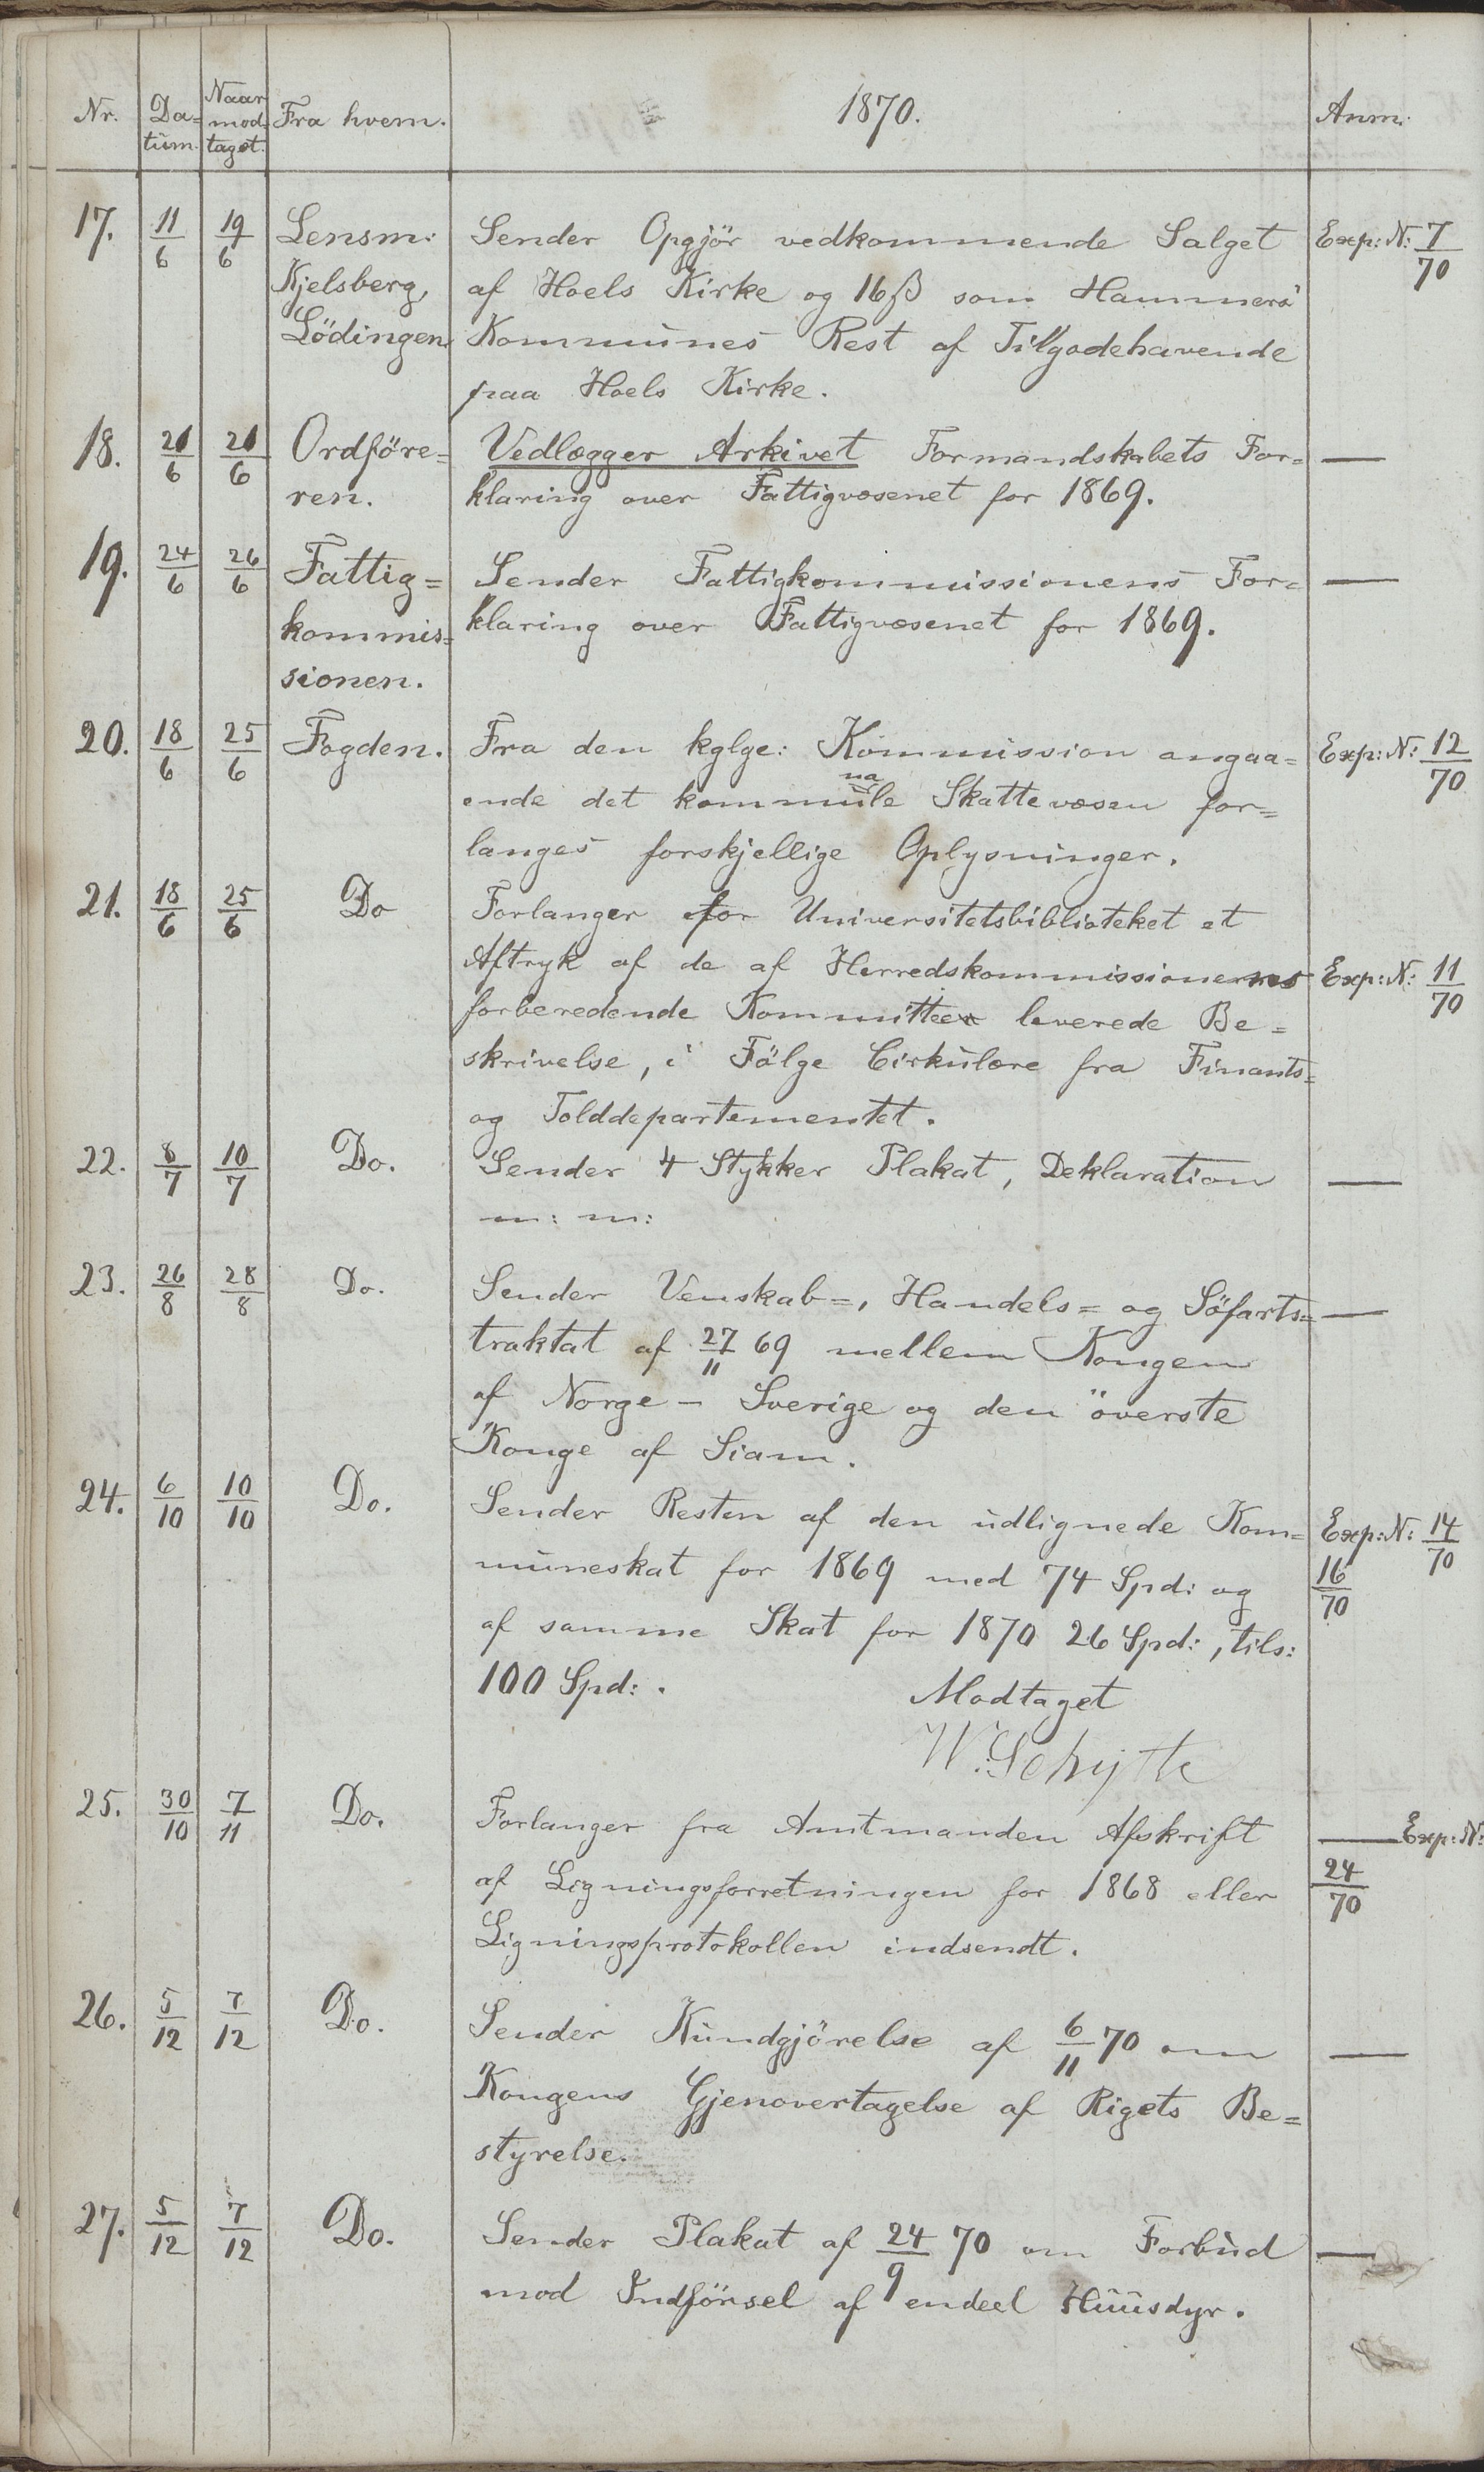 Nr. Da- tum. Naar mod- taget. Fra hvem. 1870. Anm:
17. 11/6 19/6 Lensm: Sender Opgjör vedkommende Salget Exp: N: 7/70
Kjelsberg, af Hoels Kirke og 16 ß som Hammerö
Lödingen. Kommunes Rest af Tilgodehavende
paa Hoels Kirke.
18. 21/6 21/6 Ordföre= Vedlægger Arkivet Formandskabets For= —
ren. klaring over Fattigvæsenet for 1869.
19. 24/6 26/6 Fattig= Sender Fattigkommissionens For= —
kommis= klaring over Fattigvæsenet for 1869.
sionen.
20. 18/6 25/6 Fogden. Fra den kglge: Kommission angaa= Exp: N: 12/70
ende det kommunale Skattevæsen for=
langes forskjellige Oplysninger.
21. 18/6 25/6 Do Forlanger for Universitetsbiblioteket et
Aftryk af de af Herredskommissionernes Exp: N: 11/70
forberedende Kommitteer leverede Be=
skrivelse, i Fölge Cirkulære fra Finants=
og Tolddepartementet.
22. 8/7 10/7 Do. Sender 4 Stykker Plakat, Deklaration —
m: m:
23. 26/8 28/8 Do. Sender Venskab=, Handels= og Söfarts= —
traktat af 27/11 69 mellem Kongen
af Norge - Sverige og den överste
Konge af Siam.
24. 6/10 10/10 Do. Sender Resten af den udlignede Kom= Exp: N: 14/70
muneskat for 1869 med 74 Spd: og 16/70
af samme Skat for 1870 26 Spd:, tils:
100 Spd:. Modtaget
W. Schytte
25. 30/10 7/11 Do. Forlanger fra Amtmanden Afskrift — Exp: N:
af Ligningsforretningen for 1868 eller 24/70
Ligningsprotokollen indsendt.
26. 5/12 7/12 Do. Sender Kundgjörelse af 6/11 70 om —
Kongens Gjenovertagelse af Rigets Be=
styrelse.
27. 5/12 7/12 Do. Sender Plakat af 24/9 70 om Forbud —
mod Indförsel af endeel Huusdyr.